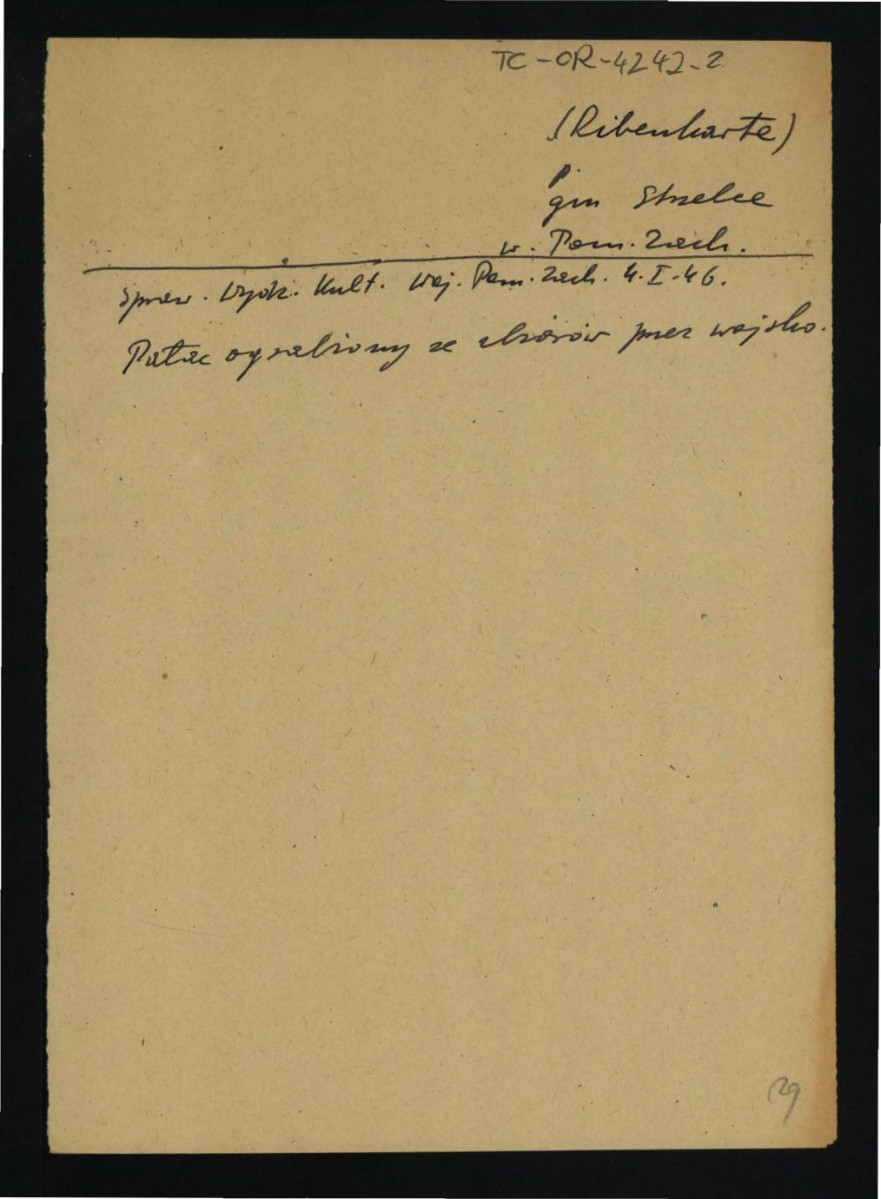 TC-OR-4242-2
(Ribenkarte)
p.
gm Strzelce
w. Pom. Zach.
Spraw. Wydz. Kult. Woj. Pom. Zach. 4.I.46.
Pałac ograbiony ze zbiorów przez wojsko.
29